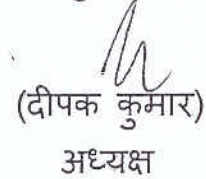 (दीपक कुमार)
अध्यक्ष